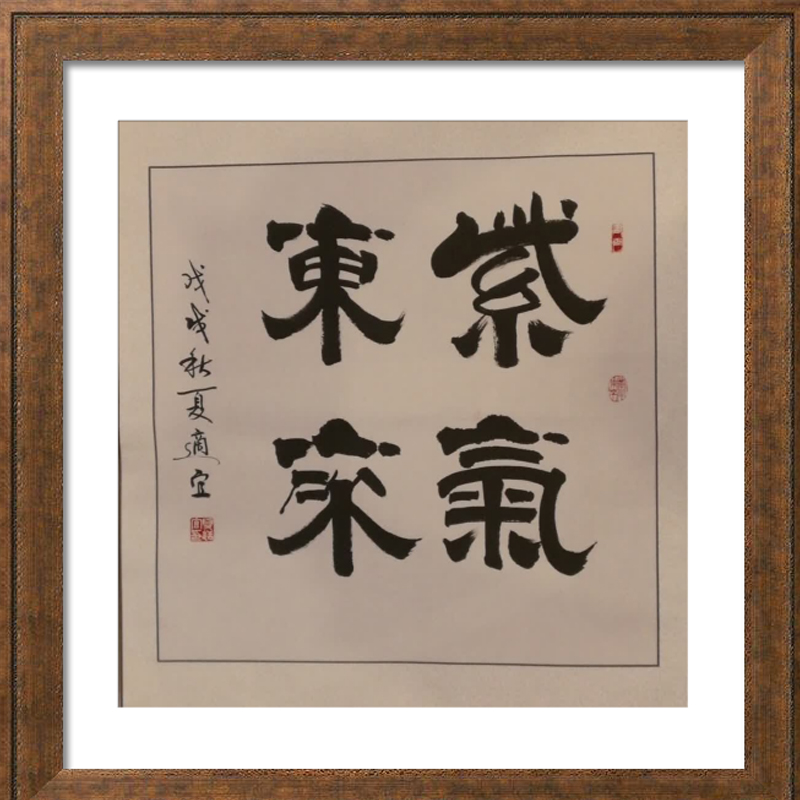 紫氣
東來
戊戌秋夏適宜